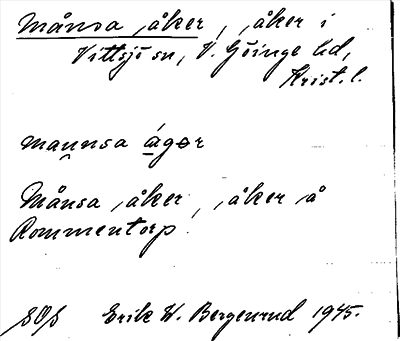 Månsa åker, åker i
Vittsjö sn, V. Göinge hd,
Krist. l.
maunsa ágər
Månsa åker, åker å
Rommentorp.
SOS Erik W. Bergenrud 1945.